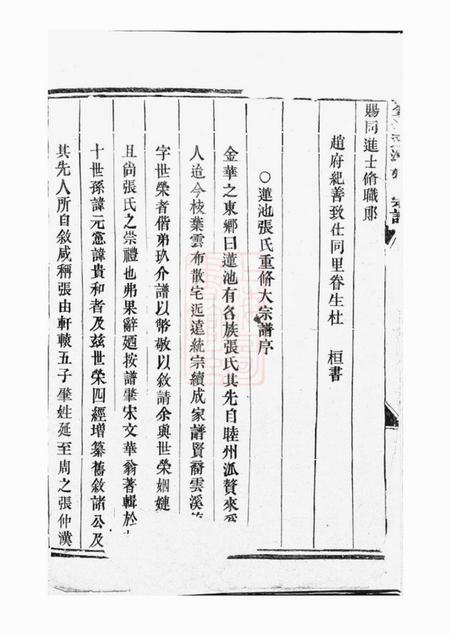 賜同進士脩職郎
趙府紀善致仕同里眷生杜 桓書
○蓮池張氏重脩大宗譜序
金華之東鄉曰蓮池有各族張氏其先自睦州派贅來爲
人迨今枝葉雲布散宅近遠統宗續成家譜賢裔雲溪
字世榮者偕弟玖介譜以幣敬以敘請余與世榮姻婕
且尚張氏之崇禮也弗果辭廼按譜肇宋文華翁著輯於
十世孫諱元憲諱貴和者及玆世榮四經增纂舊敘諸公及
其先人所自敘咸稱張由軒轅五子肇姓延至周之張仲漢